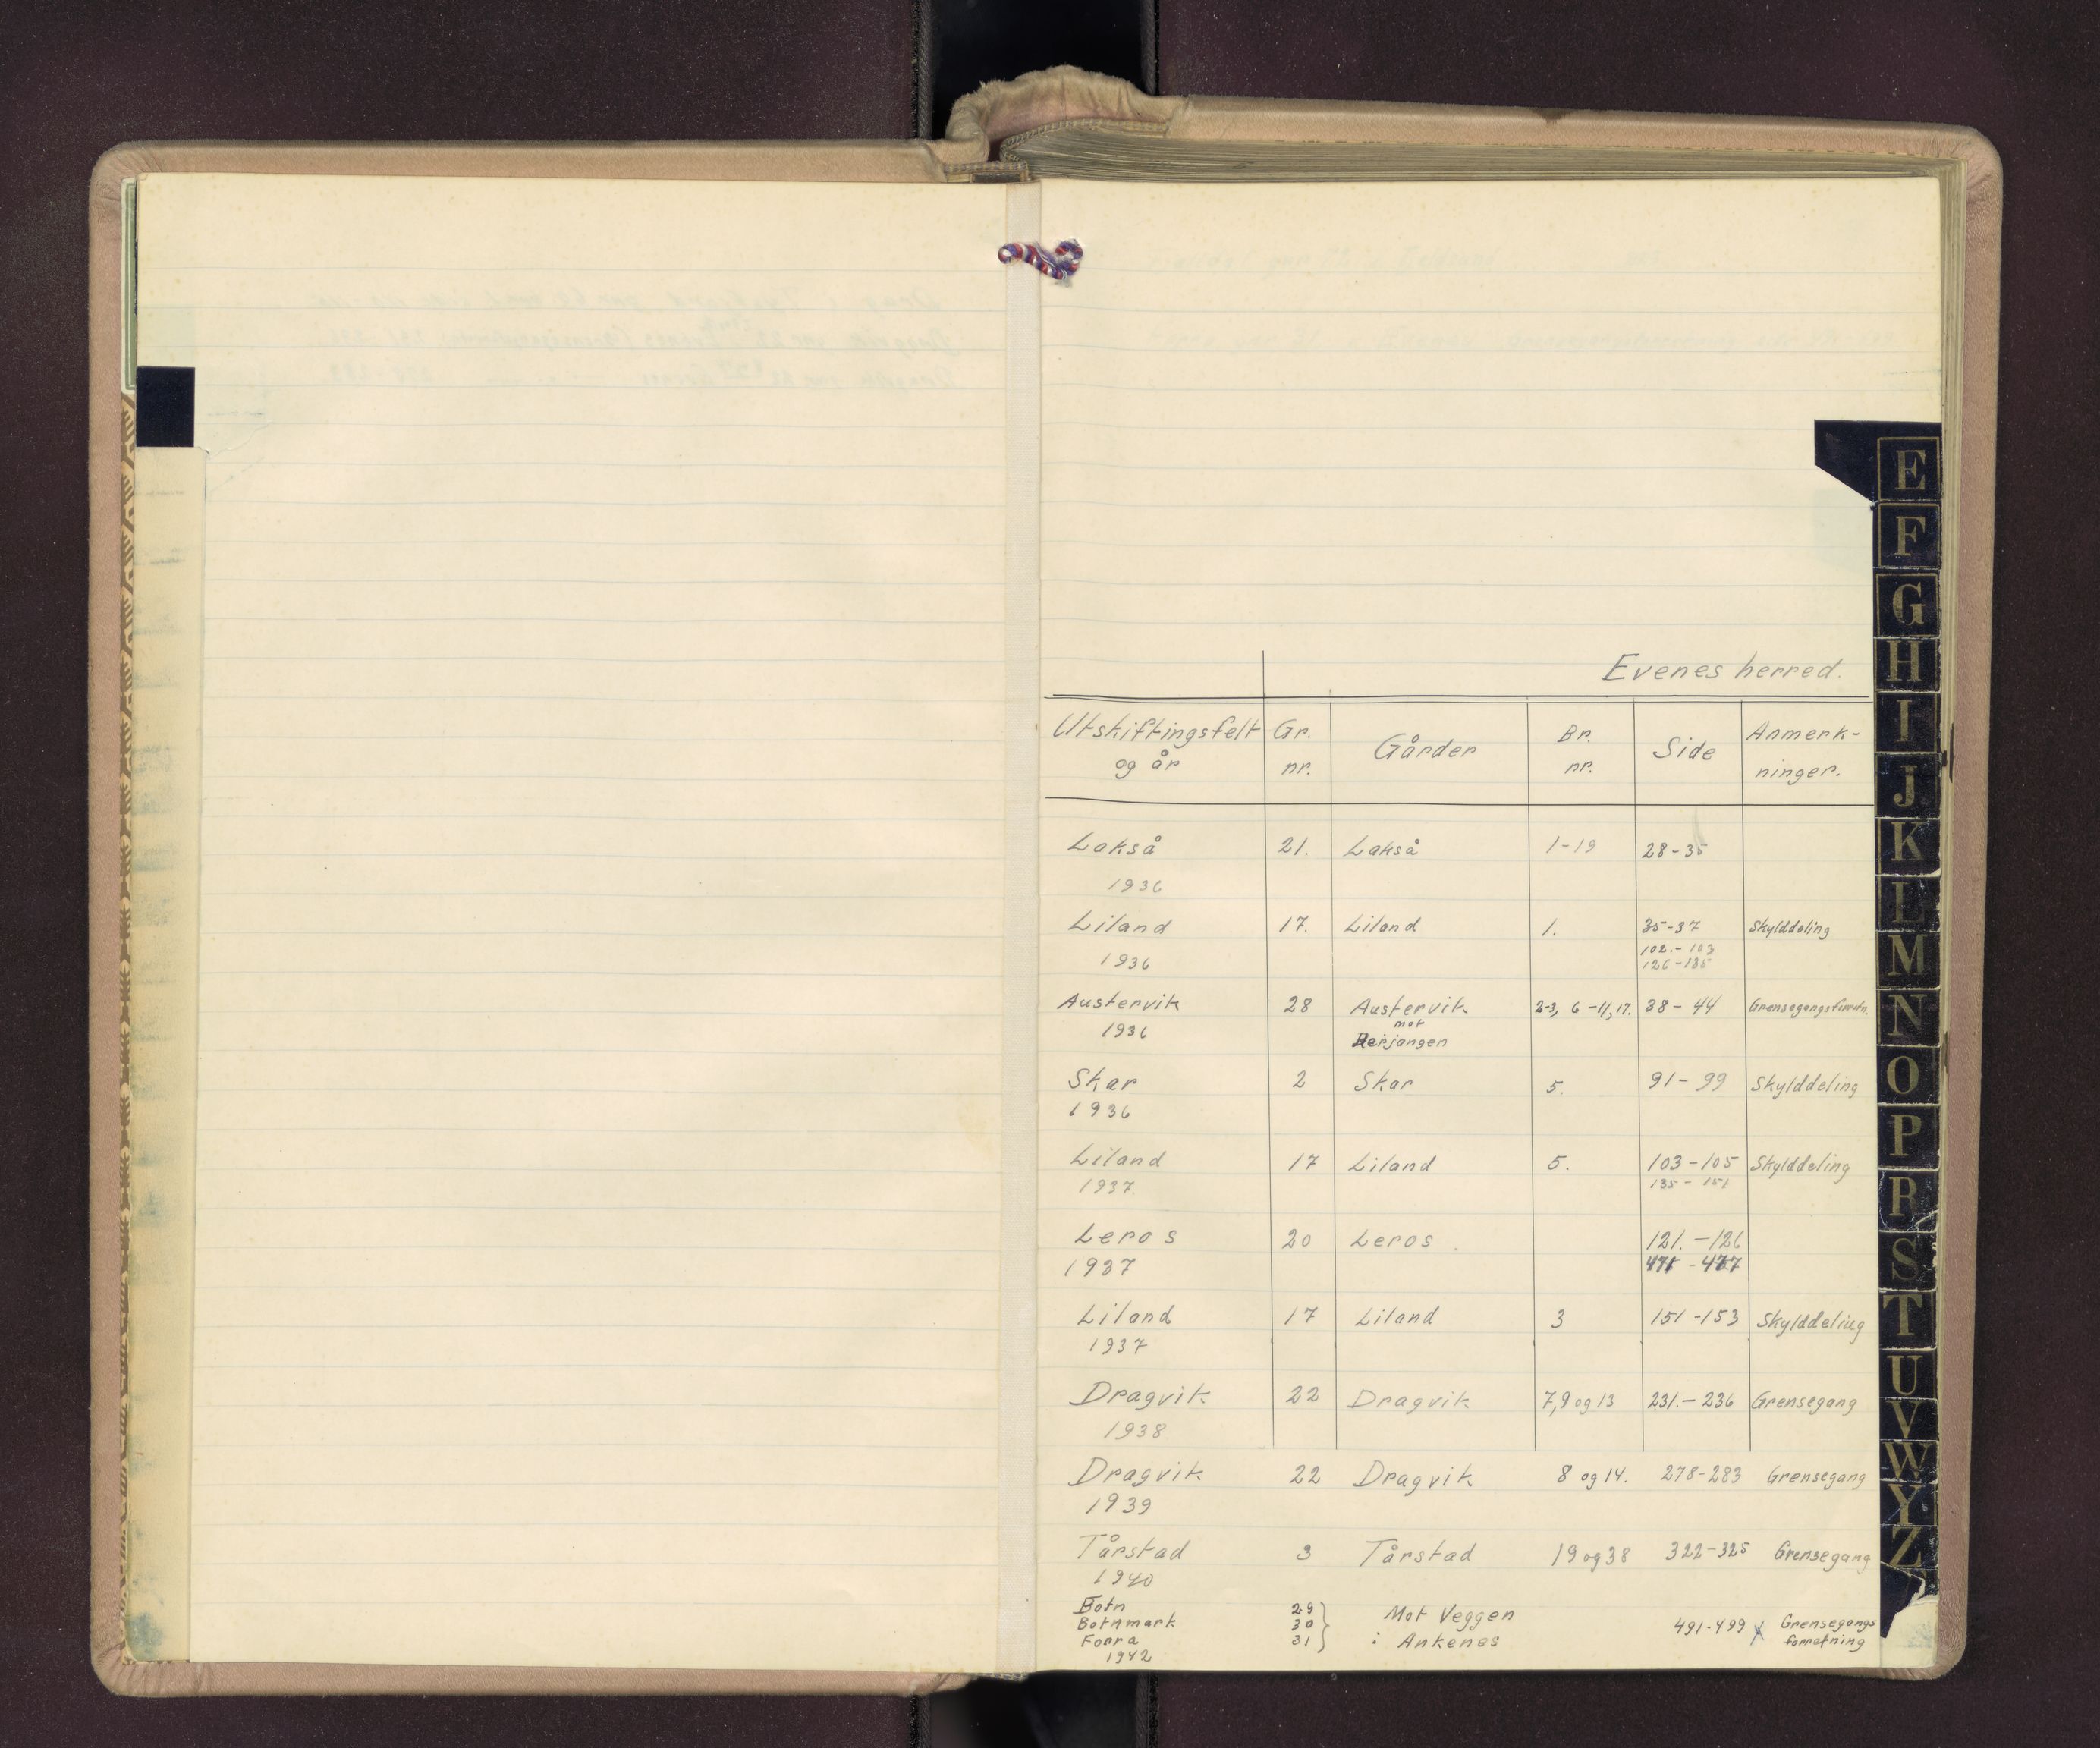 Evenes herred.
Utskiftingsfelt og år | Gr. nr. | Gårder | Br. nr. | Side | Anmerk-ninger.
Lakså 21. Lakså 1-19 28-35
1936
Liland 17. Liland 1. 35-37 Skylddeling
102.-103
1936 126-135
Austervik 28 Austervik 2-3, 6-11, 17. 38-44
mot
1936 Herjangen
Skar 2 Skar 5. 91-99 Skylddeling
1936
Liland 17 Liland 5. 103-105 Skylddeling
1937. 135-151
Leros 20 Leros 121.-126
1937 471-477
Liland 17 Liland 3 151-153 Skylddeling
1937
Dragvik 22 Dragvik 7,9 og 13 231.-236 Grensegang
1938
Dragvik 22 Dragvik 8 og 14. 278-283 Grensegang
1939
Tårstad 3 Tårstad 19 og 38 322-325 Grensegang
1940
Botn 29 Mot Veggen
Botnmark 30 491-499 x Grensegangs
Forra 31 i Ankenes forretning
1942
E
F
G
H
I
J
K
L
M
N
O
P
R
S
T
U
V
W
Y
Z